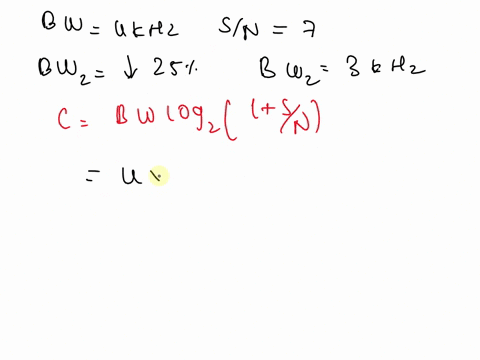 BW = 4kHz S/N = 7
BW2 = ↓ 25% BW2 = 3kHz
C = BW log2 (1+S/N)
= 4 x